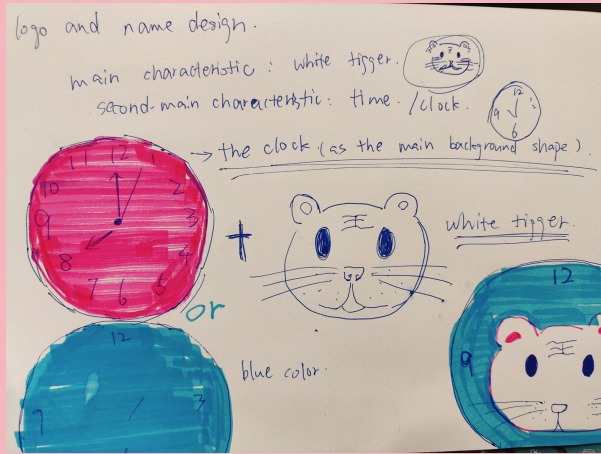 logo and name design.
main characteristic: white tigger.
second-main characteristic: time. /clock.
12
9
6
→ the clock (as the main background shape).
11 12 1
10 2
9 3
8 4
7 6 5
+
王
white tigger.
or
12
9 3
blue color.
12
9
王